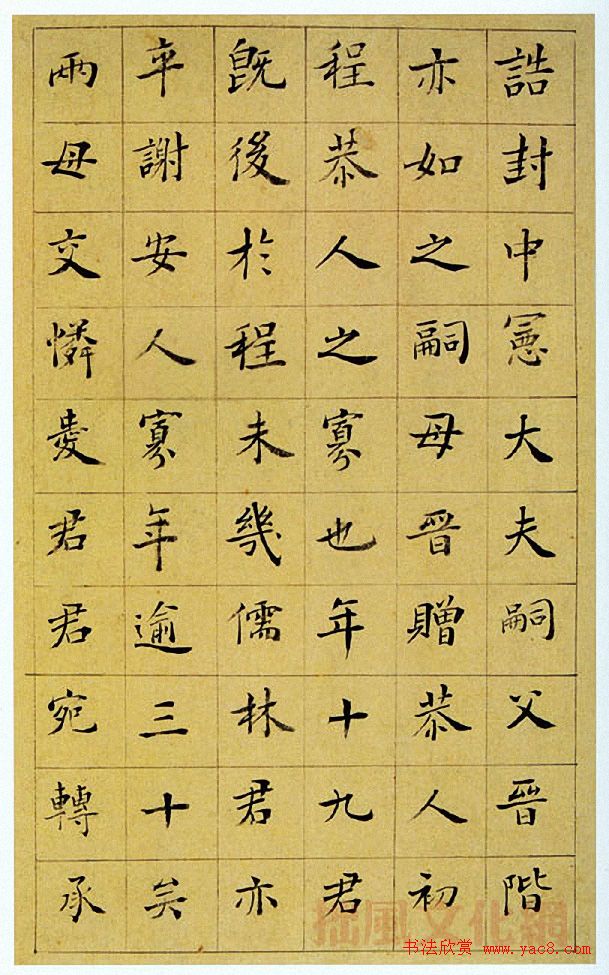 誥封中憲大夫嗣父晉階
亦如之嗣母晉贈恭人初
程恭人之寡也年十九君
既後於程未幾儒林君亦
卒謝安人寡年逾三十矣
兩母交憐愛君君宛轉承
書法欣赏 www.yac8.com